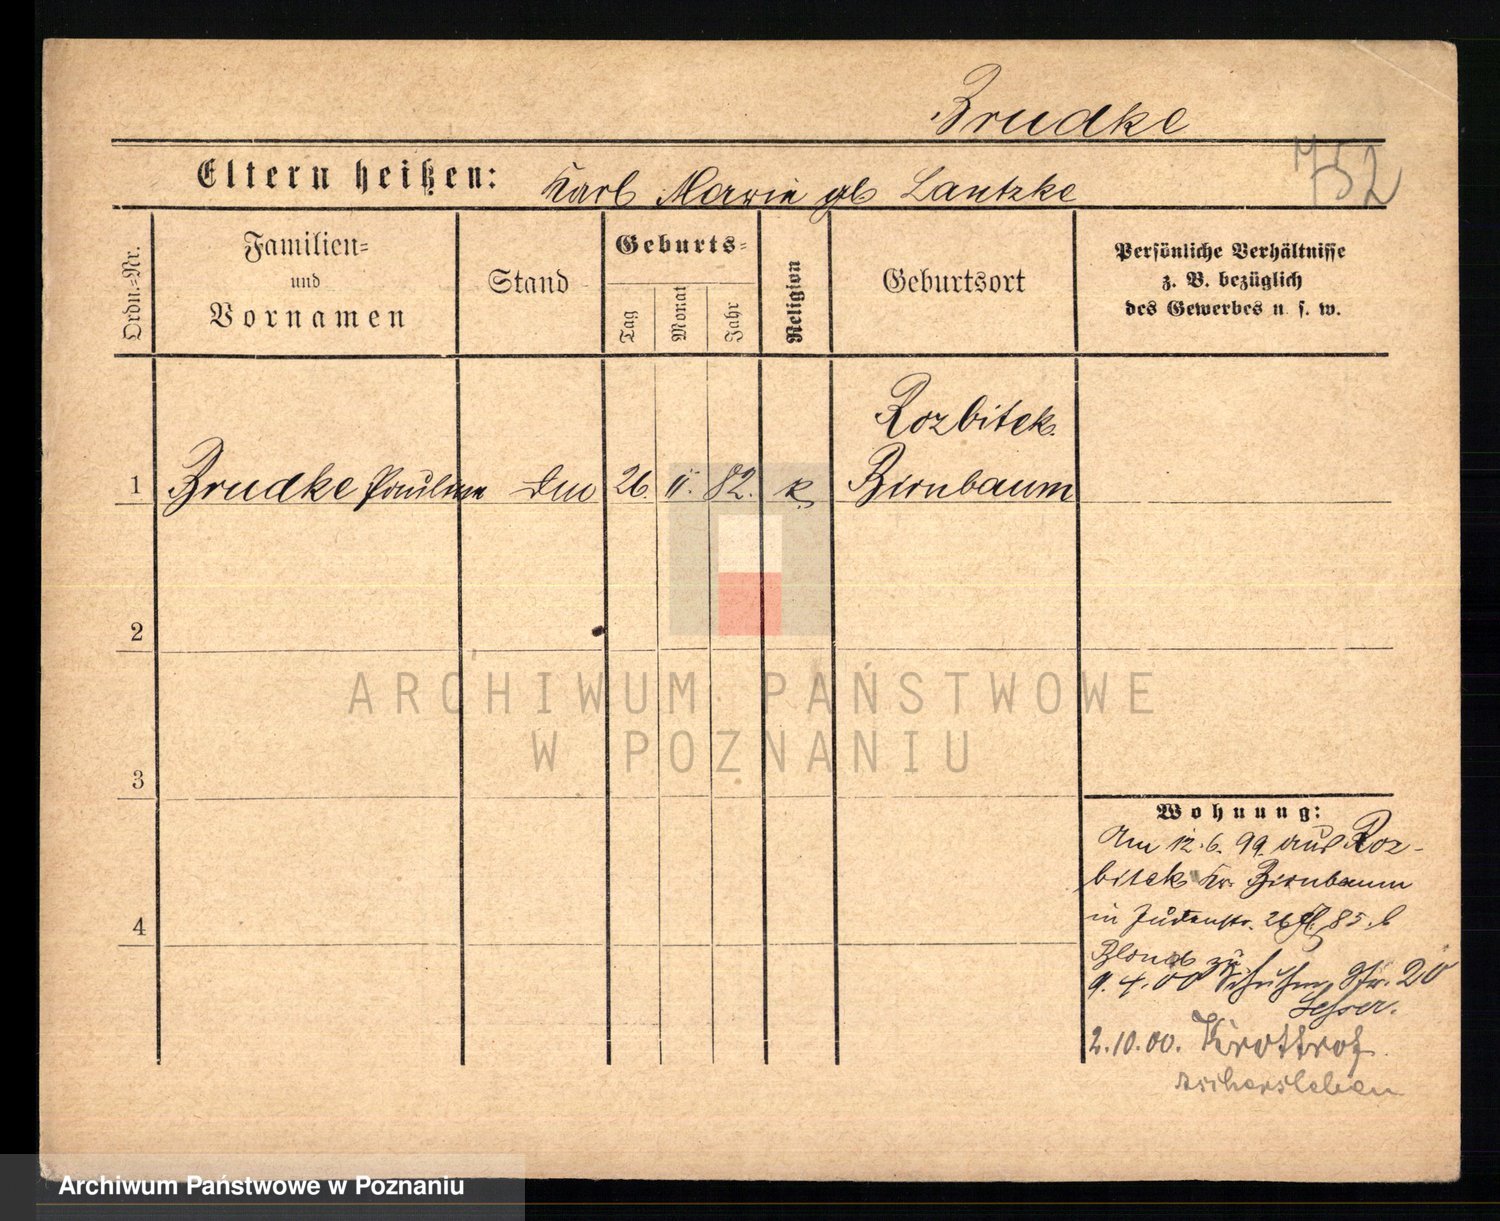 Brudke
752
Eltern heißen: Karl Marie gb Lantzke
Ordn.=Nr.
Familien=
und
Vornamen
Stand
Geburts=
Tag
Monat
Jahr
Religion
Geburtsort
Persönliche Verhältnisse
z. B. bezüglich
des Gewerbes u. s. w.
Rozbitek
1 Brudke Pauline 26. II. 82. k. Birnbaum
2
3
4
Wohnung:
Am 12. 6. 99 aus Roz-
bitek Kr. Birnbaum
in Judenstr. 26 85. b
9. 4. 00 Schuhm. Str. 20
2.10.00.
Aschersleben
ARCHIWUM PAŃSTWOWE
W POZNANIU
Archiwum Państwowe w Poznaniu